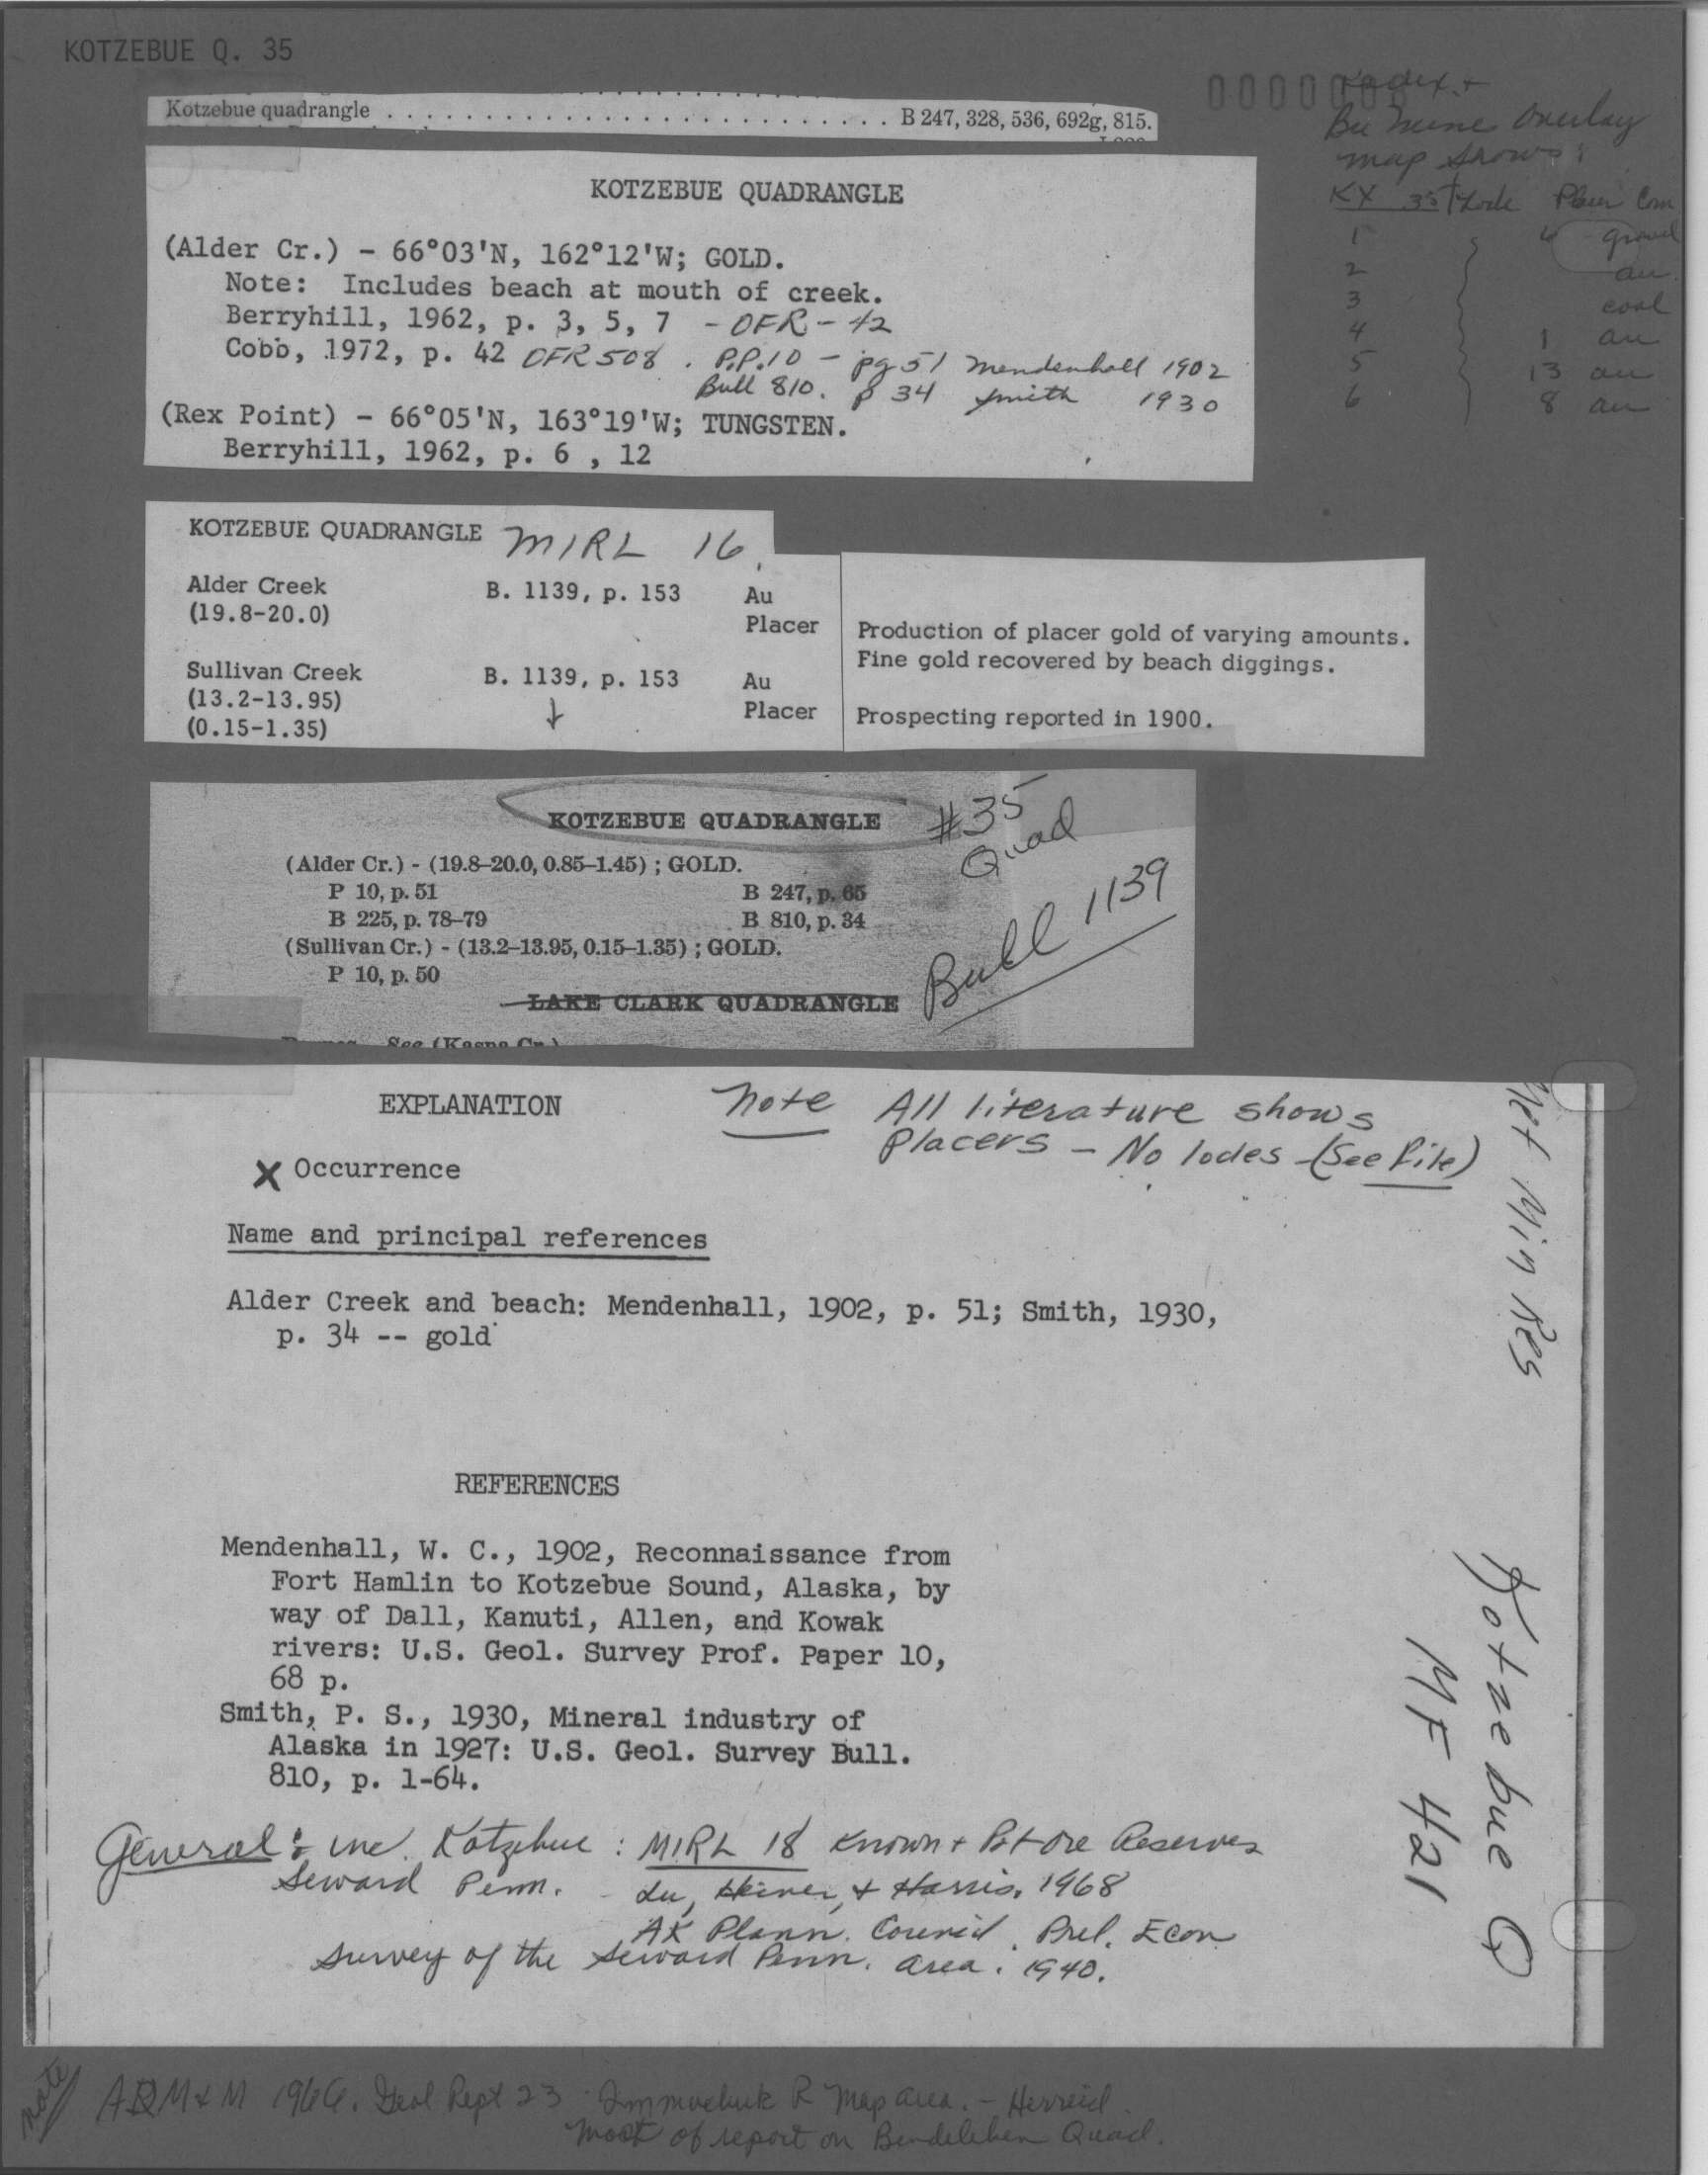 KOTZEBUE Q. 35
Kotzebue quadrangle . . . . . . . . . . . . . . . . . . . . . . . . . . B 247, 328, 536, 692g, 815.
KOTZEBUE QUADRANGLE
(Alder Cr.) - 66°03'N, 162°12'W; GOLD.
Note: Includes beach at mouth of creek.
Berryhill, 1962, p. 3, 5, 7 - OFR - 42
Cobb, 1972, p. 42 OFR 508 . P.P.10 - pg 51 Mendenhall 1902
Bull 810. p 34 Smith 1930
(Rex Point) - 66°05'N, 163°19'W; TUNGSTEN.
Berryhill, 1962, p. 6 , 12
0000008
Kadex +
Bu Mine Overlay
map shows:
KX 35 Lode Placer Com
1 gravel
2 au
3 coal
4 1 au
5 13 au
6 8 au
KOTZEBUE QUADRANGLE MIRL 16
Alder Creek B. 1139, p. 153 Au
(19.8-20.0) Placer Production of placer gold of varying amounts.
Fine gold recovered by beach diggings.
Sullivan Creek B. 1139, p. 153 Au
(13.2-13.95) Placer Prospecting reported in 1900.
(0.15-1.35)
KOTZEBUE QUADRANGLE #35 Quad
(Alder Cr.) - (19.8–20.0, 0.85–1.45) ; GOLD.
P 10, p. 51 B 247, p. 65
B 225, p. 78–79 B 810, p. 34
(Sullivan Cr.) - (13.2–13.95, 0.15–1.35) ; GOLD.
P 10, p. 50
Bull 1139
LAKE CLARK QUADRANGLE
See (Kasna Cr.)
EXPLANATION
Note All literature shows
Placers - No lodes - (See File)
X Occurrence
Name and principal references
Alder Creek and beach: Mendenhall, 1902, p. 51; Smith, 1930,
p. 34 -- gold
Met Min Res
Kotzebue Q
MF 421
REFERENCES
Mendenhall, W. C., 1902, Reconnaissance from
Fort Hamlin to Kotzebue Sound, Alaska, by
way of Dall, Kanuti, Allen, and Kowak
rivers: U.S. Geol. Survey Prof. Paper 10,
68 p.
Smith, P. S., 1930, Mineral industry of
Alaska in 1927: U.S. Geol. Survey Bull.
810, p. 1-64.
General: inc. Kotzebue : MIRL 18 Known + Pot Ore Reserves
Seward Penn. - Lu, Heiner, + Harris, 1968
AK Plann. Council. Prel. Econ
Survey of the Seward Penn. area. 1940.
note
ADM&M 1966. Geol Rept 23 Inmachuk R Map area. - Herreid.
Most of report on Bendeleben Quad.